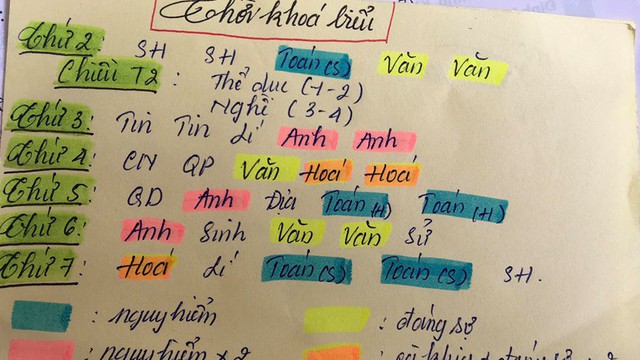 Thời khoá biểu
Thứ 2: SH SH Toán(S) Văn Văn
Chiều T2: Thể dục (1-2)
Nghề (3-4)
Thứ 3: Tin Tin Lí Anh Anh
Thứ 4: CN QP Văn Hoá Hoá
Thứ 5: GD Anh Địa Toán(H) Toán(H)
Thứ 6: Anh Sinh Văn Văn Sử
Thứ 7: Hoá Lí Toán(S) Toán(S) SH.
: nguy hiểm : đáng sợ
: nguy hiểm x 2 :